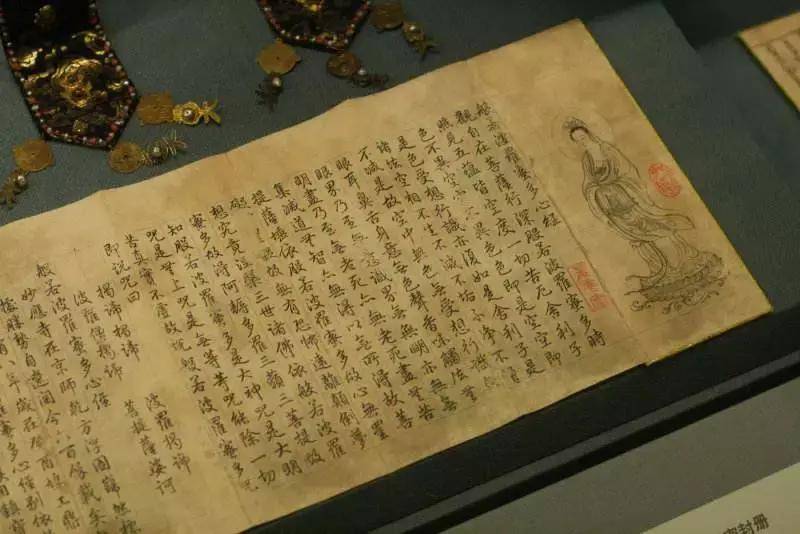 般若波羅蜜多心經
觀自在菩薩行深般若波羅蜜多時
照見五蘊皆空度一切苦厄舍利子
色不異空空不異色色即是空空即
是色受想行識亦復如是舍利子是
諸法空相不生不滅不垢不淨不增
不減是故空中無色無受想行識無
眼耳鼻舌身意無色聲香味觸法無
眼界乃至無意識界無無明亦無無
明盡乃至無老死亦無老死盡無苦
集滅道無智亦無得以無所得故菩
提薩埵依般若波羅蜜多故心無罣
礙無罣礙故無有恐怖遠離顛倒夢
想究竟涅槃三世諸佛依般若波羅
蜜多故得阿耨多羅三藐三菩提故
知般若波羅蜜多是大神咒是大明
咒是無上咒是無等等咒能除一切
苦真實不虛故說般若波羅蜜多咒
即說咒曰
揭諦揭諦 波羅揭諦
波羅僧揭諦 菩提薩婆訶
般若波羅蜜多心經
妙應寺在京師乾方浮圖巋然標
勝勢自遼迄今六百餘載矣
封册